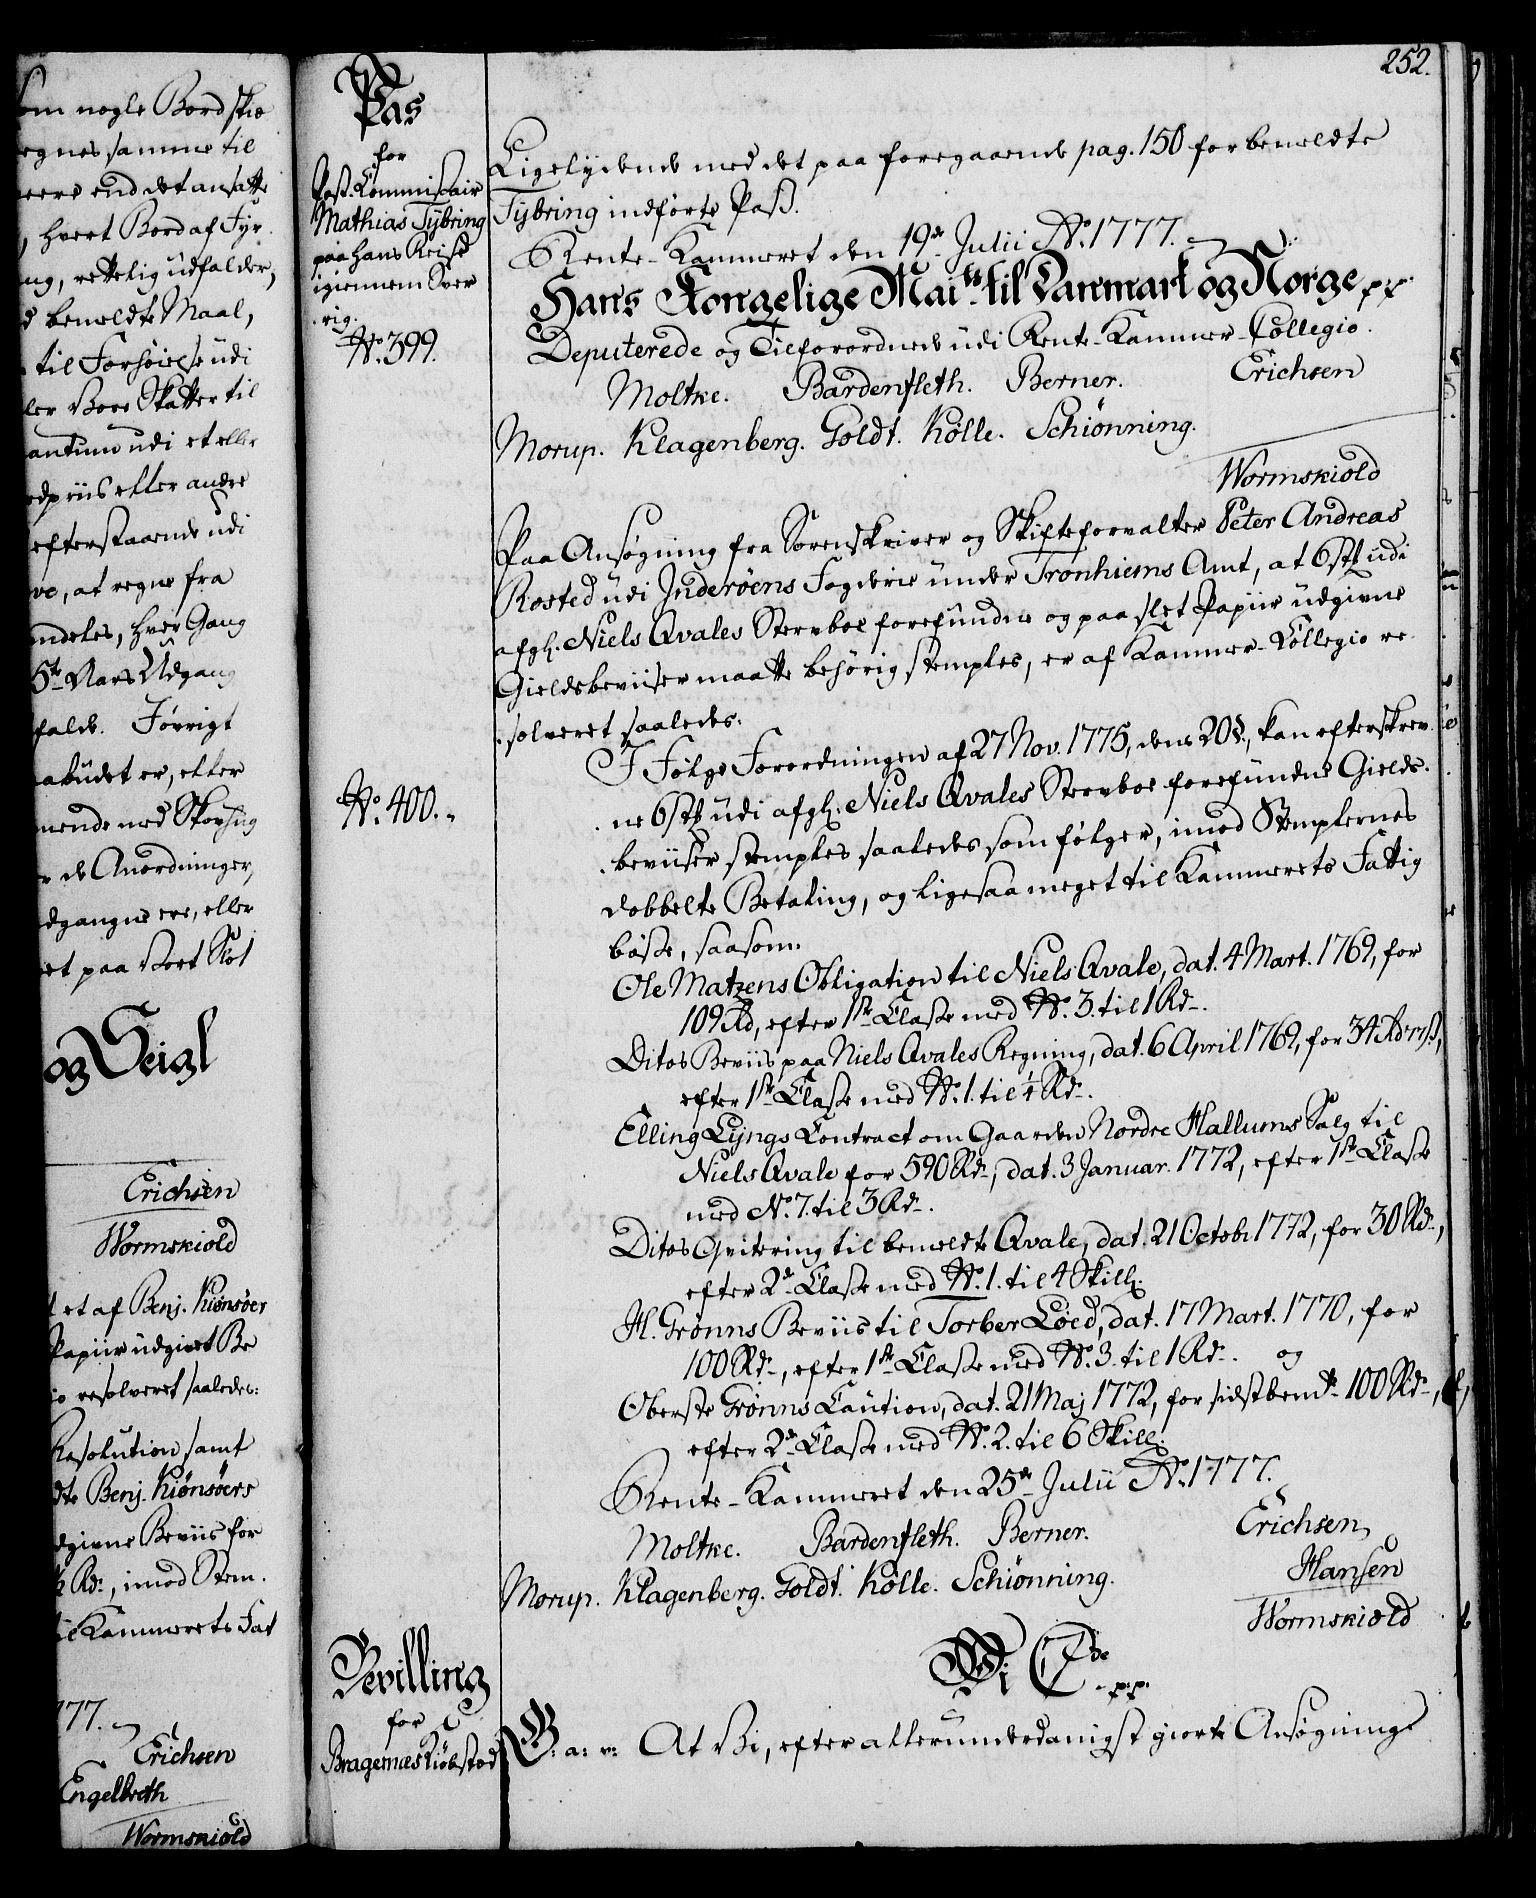 om nogle Bord skie
egnes samme til
meere end det ansatte
, hvert Bord af Fyr
ng, rettelig udfalder,
d bemeldte Maal,
til Forhøielse udi
ler vore Skatter til
antum udi et eller
edpriis eller andre
efterstaaende udi
ve, at regne fra
ndeles, hver Gang
5te Aars Udgang
falde. Jøvrigt
abudet er, eller
mende med Skovhug
r de Anordninger,
dgangne ere, eller
et paa vort Slot
og Seigl
Erichsen
Wormskiold
et af Benj. Kiønsøer
Papiir udgivet Be
io resolveret saaledes:
Resolution samt
dte Benj. Kiønsøers
dgivne Beviis for
Rdr, imod Stem-
il Kammerets Fat
777.
Erichsen
Engelbreth
Wormskiold
Pas
for
Pass-Commissair
Mathias Tÿbring
paa hans Reise
igiennem Sver
rig.
No. 399.
No. 400.
Bevilling
for
Bragernæs Kiøbstad
252.
Ligelydende med det paa foregaaende pag. 150 for bemeldte
Tÿbring indførte Pass.
Rente-Kammeret den 19de Julii Ao. 1777.
Hans Kongelige Maits til Danmark og Norge pp
Deputerede og Tilforordnede udi Rente-Kammer-Collegio.
Moltke. Bardenfleth. Berner. Erichsen
Morup. Klagenberg. Goldt. Kölle. Schiønning.
Wormskiold
Paa Ansøgning fra Sorenskriver og Skifteforvalter Peter Andreas
Rosted udi Inderöens Fogderie under Tronhiems Amt, at 6 stk udi
afgl. Niels Qvales Sterboe forefundne og paa slet Papiir udgivne
Gieldsbeviiser maatte behørig stemples, er af Kammer-Collegio re-
solveret saaledes:
I Følge Forordningen af 27 Nov. 1775, dens 20 §, kan efterskrev-
ne 6 stk udi afgl. Niels Qvales Sterboe forefundne Gields-
beviiser stemples saaledes som følger, imod Stemplernes
dobbelte Betaling, og ligesaa meget til Kammerets Fattig
bøsse, saasom:
Ole Matzens Obligation til Niels Qvale, dat. 4 Mart. 1769, for
109 Rd, efter 1ste Classe med No. 3. til 1 Rdr.
Ditos Beviis paa Niels Qvales Regning, dat. 6 April 1769, for 34 Rd
efter 1ste Classe med No. 1. til ¼ Rdr.
Elling Lÿngs Contract om Gaarden Nordre Hallums Salg til
Niels Qvale for 590 Rdr, dat. 3 Januar. 1772, efter 1ste Classe
med No. 7. til 3 Rdr.
Ditos Qvitering til bemeldte Qvale, dat. 21 Octobr 1772, for 30 Rdr,
efter 2de Classe med No. 1. til 4 Skill:
H. Grønns Beviis til Torber Löed, dat. 17 Mart. 1770, for
100 Rdr, efter 1ste Classe med No. 3. til 1 Rdr. og
Oberste Grønns Caution, dat. 21 Maj 1772, for sidstbemte 100 Rdr,
efter 2de Classe med No. 2. til 6 Skill:
Rente-Kammeret den 25de Julii Ao. 1777.
Moltke. Bardenfleth. Berner. Erichsen
Morup. Klagenberg. Goldt. Kölle. Schiønning. Hansen
Wormskiold
Wi C 7de p:p:
G: a: v: At Vi, efter allerunderdanigst giorte Ansøgnings